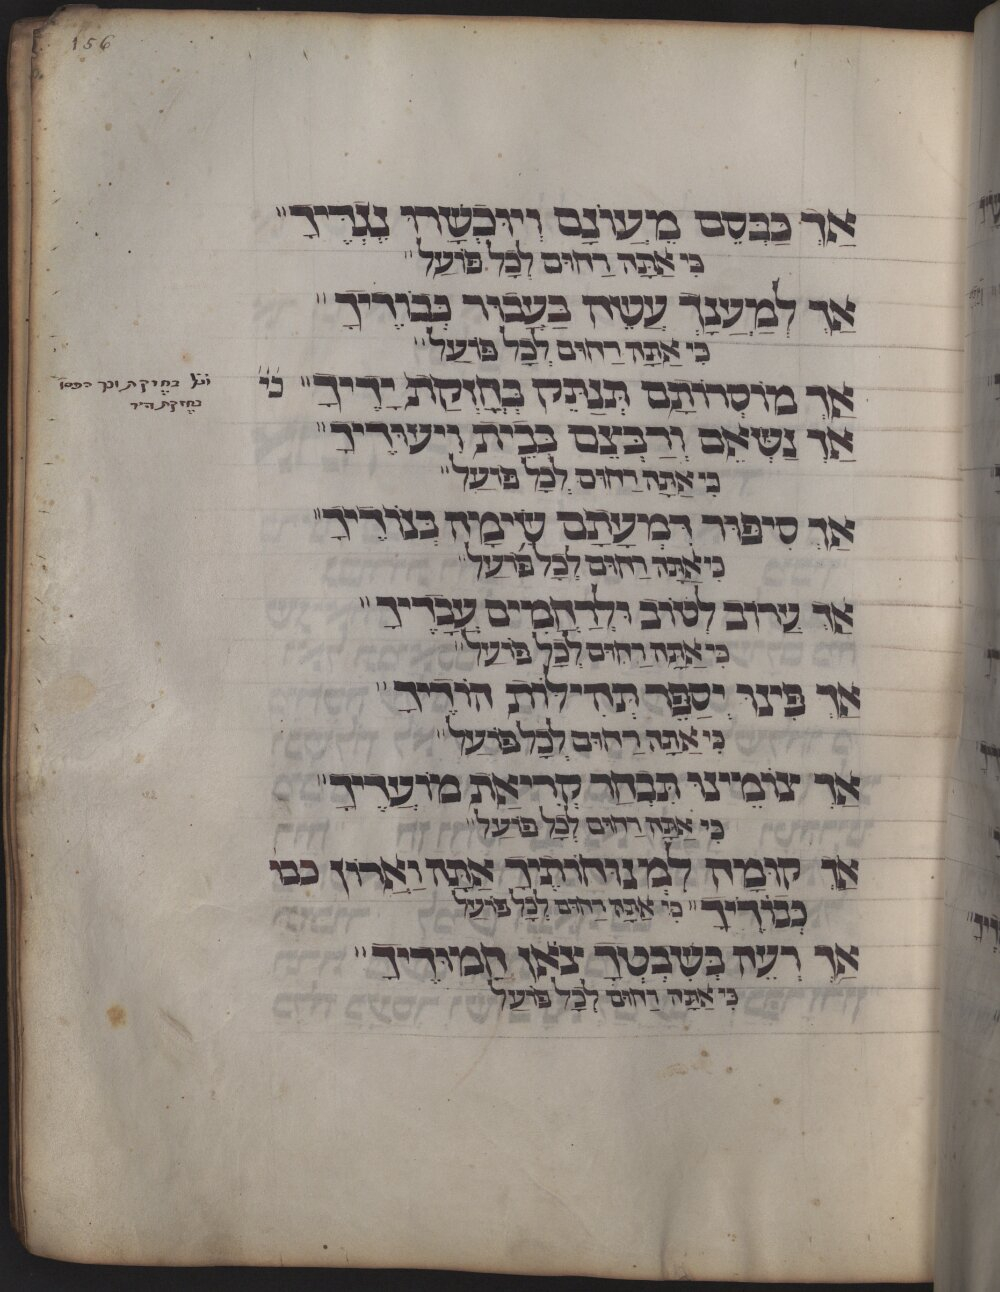 156
אַךְ כַּבְּסֵם מֵעֲוֹנָם וְיוּכְשָׁרוּ נֶגְדֶּיךָ
כִּי אַתָּה רַחוּם לְכָל פּוֹעַל
אַךְ לְמַעֲנָךְ עֲשֵׂה בַּעֲבוּר כְּבוֹדֶיךָ
כִּי אַתָּה רַחוּם לְכָל פּוֹעַל
אַךְ מוֹסְרוֹתָם תְּנַתֵּק בְּחָזְקַת יָדֶיךָ כִּי
בחזקת היד
אַךְ נַשְּׂאֵם וְרַבְּצֵם בְּבֵית וִיעוּדֶיךָ
כִּי אַתָּה רַחוּם לְכָל פּוֹעַל
אַךְ סִיפּוּר דִּמְעָתָם שִׂימָה בְּנוֹדֶיךָ
כִּי אַתָּה רַחוּם לְכָל פּוֹעַל
אַךְ עֲרוֹב לְטוֹב וּלְרַחֲמִים עֲבָדֶיךָ
כִּי אַתָּה רַחוּם לְכָל פּוֹעַל
אַךְ פִּינוּ יְסַפֵּר תְּהִילּוֹת הוֹדֶיךָ
כִּי אַתָּה רַחוּם לְכָל פּוֹעַל
אַךְ צוֹמֵינוּ תִּבְחַר קְרִיאַת מוֹעֲדֶיךָ
כִּי אַתָּה רַחוּם לְכָל פּוֹעַל
אַךְ קוּמָה לִמְנוּחוֹתֶיךָ אַתָּה וַאֲרוֹן כבו
כְּבוֹדֶיךָ כִּי אַתָּה רַחוּם לְכָל פּוֹעַל
אַךְ רְעֵה בְּשִׁבְטְךָ צֹאן חֲמוּדֶיךָ
כִּי אַתָּה רַחוּם לְכָל פּוֹעַל